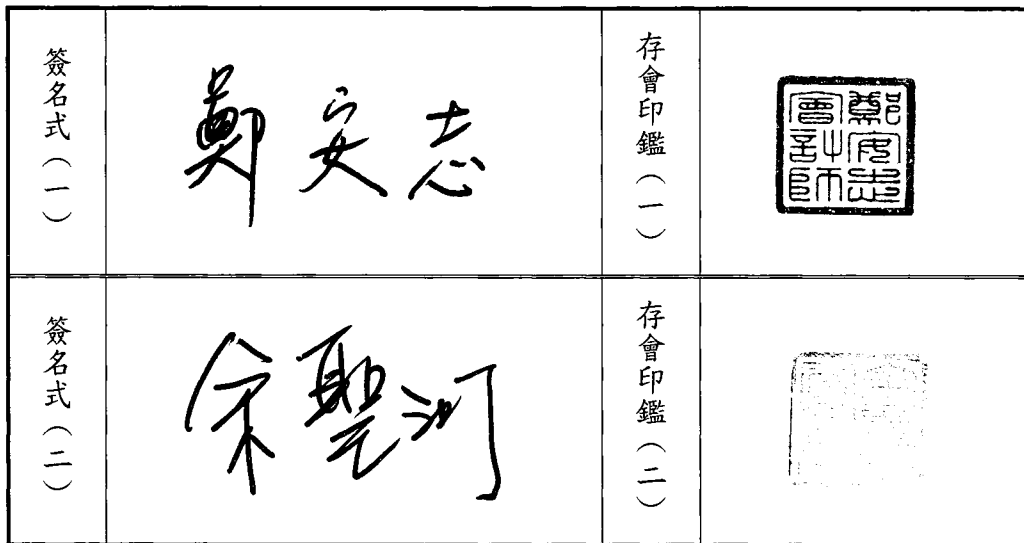 簽名式（一）
鄭安志
存會印鑑（一）
鄭安志會計師
簽名式（二）
余聖河
存會印鑑（二）